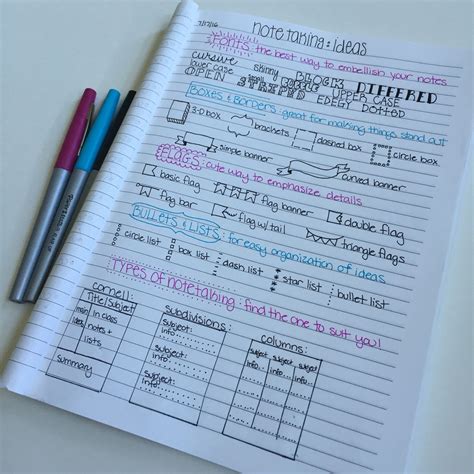 7/17/16
note taking: ideas
Fonts: the best way to embellish your notes
cursive skinny BLOCK DIFFERED
lower case small BUBBLE UPPER CASE
OPEN STRIPED EDGY DOTTED
Boxes & Borders: great for making things stand out
3-D box brackets dashed box circle box
simple banner curved banner
FLAGS: cute way to emphasize details
basic flag flag banner double flag
flag bar flag w/tail triangle flags
Bullets & Lists: for easy organization of ideas
circle list box list dash list star list bullet list
Types of notetaking: find the one to suit you!
cornell: subdivisions: columns:
Title/Subject
main idea
in class notes + lists
summary
Subject:
info:
Subject:
info:
Subject:
info:
subject subject subject
info... info... info...